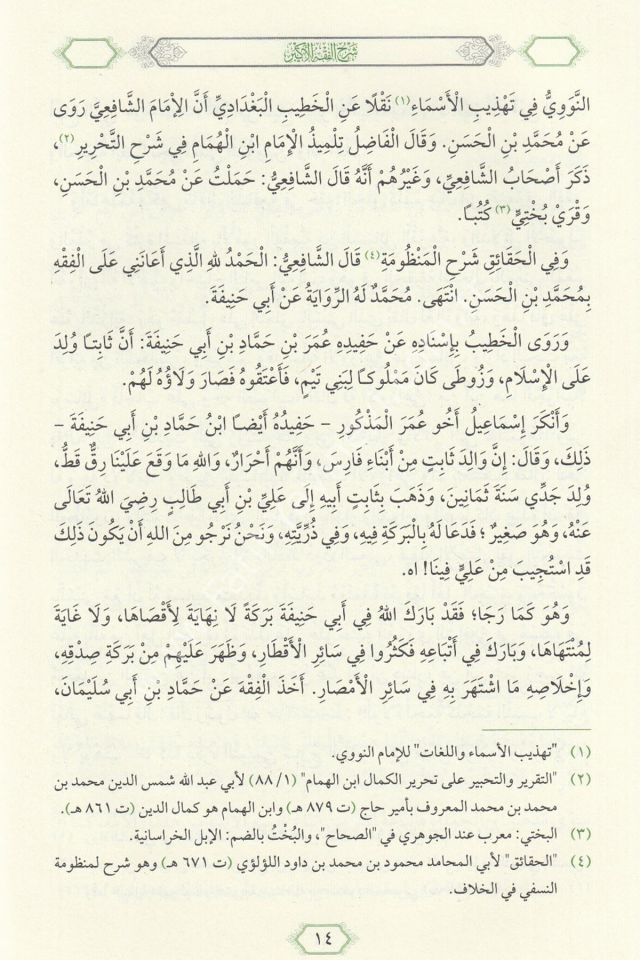 شرح الفقه الأكبر
النَّوَوِيُّ فِي تَهْذِيبِ الْأَسْمَاءِ(١) نَقْلًا عَنِ الْخَطِيبِ الْبَغْدَادِيِّ أَنَّ الْإِمَامَ الشَّافِعِيَّ رَوَى
عَنْ مُحَمَّدِ بْنِ الْحَسَنِ. وَقَالَ الْفَاضِلُ تِلْمِيذُ الْإِمَامِ ابْنِ الْهُمَامِ فِي شَرْحِ التَّحْرِيرِ(٢)،
ذَكَرَ أَصْحَابُ الشَّافِعِيِّ، وَغَيْرُهُمْ أَنَّهُ قَالَ الشَّافِعِيُّ: حَمَلْتُ عَنْ مُحَمَّدِ بْنِ الْحَسَنِ،
وَقْرَيْ بُخْتِيٍّ(٣) كُتُبًا.
وَفِي الْحَقَائِقِ شَرْحِ الْمَنْظُومَةِ(٤) قَالَ الشَّافِعِيُّ: الْحَمْدُ لِلهِ الَّذِي أَعَانَنِي عَلَى الْفِقْهِ
بِمُحَمَّدِ بْنِ الْحَسَنِ. انْتَهَى. مُحَمَّدٌ لَهُ الرِّوَايَةُ عَنْ أَبِي حَنِيفَةَ.
وَرَوَى الْخَطِيبُ بِإِسْنَادِهِ عَنْ حَفِيدِهِ عُمَرَ بْنِ حَمَّادِ بْنِ أَبِي حَنِيفَةَ: أَنَّ ثَابِتًا وُلِدَ
عَلَى الْإِسْلَامِ، وَزُوطَى كَانَ مَمْلُوكًا لِبَنِي تَيْمٍ، فَأَعْتَقُوهُ فَصَارَ وَلَاؤُهُ لَهُمْ.
وَأَنْكَرَ إِسْمَاعِيلُ أَخُو عُمَرَ الْمَذْكُورِ – حَفِيدُهُ أَيْضًا ابْنُ حَمَّادِ بْنِ أَبِي حَنِيفَةَ –
ذَلِكَ، وَقَالَ: إِنَّ وَالِدَ ثَابِتٍ مِنْ أَبْنَاءِ فَارِسَ، وَأَنَّهُمْ أَحْرَارٌ، وَاللهِ مَا وَقَعَ عَلَيْنَا رِقٌّ قَطُّ،
وُلِدَ جَدِّي سَنَةَ ثَمَانِينَ، وَذَهَبَ بِثَابِتٍ أَبِيهِ إِلَى عَلِيِّ بْنِ أَبِي طَالِبٍ رَضِيَ اللهُ تَعَالَى
عَنْهُ، وَهُوَ صَغِيرٌ؛ فَدَعَا لَهُ بِالْبَرَكَةِ فِيهِ، وَفِي ذُرِّيَّتِهِ، وَنَحْنُ نَرْجُو مِنَ اللهِ أَنْ يَكُونَ ذَلِكَ
قَدِ اسْتُجِيبَ مِنْ عَلِيٍّ فِينَا! اه.
وَهُوَ كَمَا رَجَا؛ فَقَدْ بَارَكَ اللهُ فِي أَبِي حَنِيفَةَ بَرَكَةً لَا نِهَايَةَ لِأَقْصَاهَا، وَلَا غَايَةَ
لِمُنْتَهَاهَا، وَبَارَكَ فِي أَتْبَاعِهِ فَكَثُرُوا فِي سَائِرِ الْأَقْطَارِ، وَظَهَرَ عَلَيْهِمْ مِنْ بَرَكَةِ صِدْقِهِ،
وَإِخْلَاصِهِ مَا اشْتَهَرَ بِهِ فِي سَائِرِ الْأَمْصَارِ. أَخَذَ الْفِقْهَ عَنْ حَمَّادِ بْنِ أَبِي سُلَيْمَانَ،
(١) "تهذيب الأسماء واللغات" للإمام النووي.
(٢) "التقرير والتحبير على تحرير الكمال ابن الهمام" (١/ ٨٨) لأبي عبد الله شمس الدين محمد بن
محمد بن محمد المعروف بأمير حاج (ت ٨٧٩ هـ) وابن الهمام هو كمال الدين (ت ٨٦١ هـ).
(٣) البختي: معرب عند الجوهري في "الصحاح"، والبُخْتُ بالضم: الإبل الخراسانية.
(٤) "الحقائق" لأبي المحامد محمود بن محمد بن داود اللؤلؤي (ت ٦٧١ هـ) وهو شرح لمنظومة
النسفي في الخلاف.
١٤